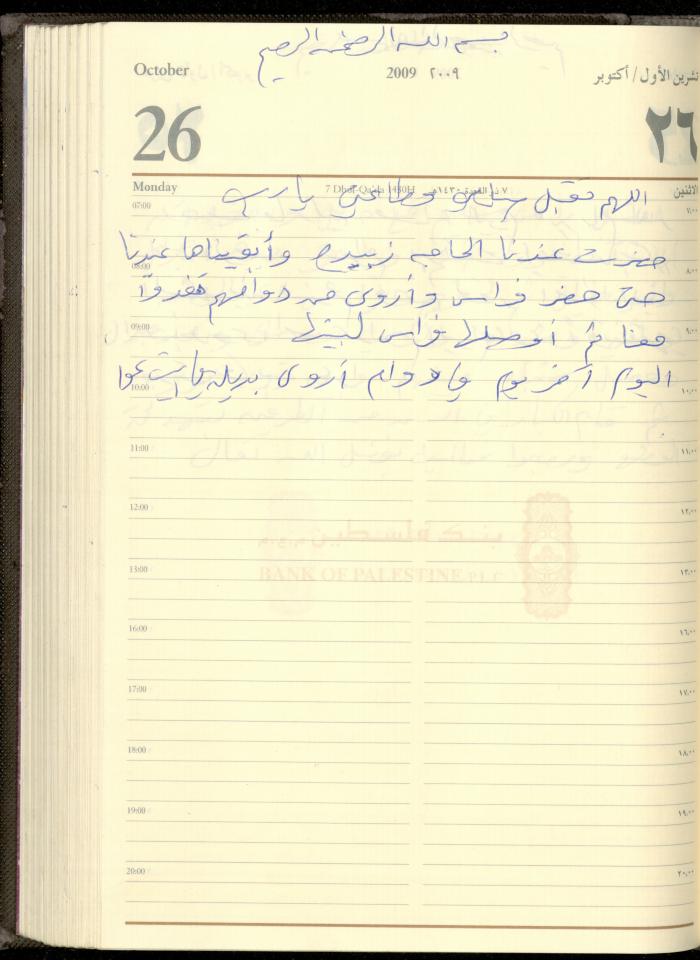 بسم الله الرحمن الرحيم
October 2009 ٢٠٠٩ تشرين الأول / أكتوبر
26 ٢٦
Monday 7 Dhul-Qa'da 1430H ٧ ذو القعدة ١٤٣٠هـ الاثنين
اللهم تقبل صلاتي وطاعتي يارب
07:00 ٧:٠٠
حضرت عندنا الحاجه زبيده وأبقيناها عندنا
08:00 ٨:٠٠
حتى حضر فراس وأروى من دوامهم تغدوا
09:00 ٩:٠٠
معنا ثم أوصلها فراس لبيتها
اليوم آخر يوم دوام أروى بديلة
10:00 ١٠:٠٠
11:00 ١١:٠٠
12:00 ١٢:٠٠
بنك فلسطين
13:00 ١٣:٠٠
BANK OF PALESTINE P.L.C
16:00 ١٦:٠٠
17:00 ١٧:٠٠
18:00 ١٨:٠٠
19:00 ١٩:٠٠
20:00 ٢٠:٠٠